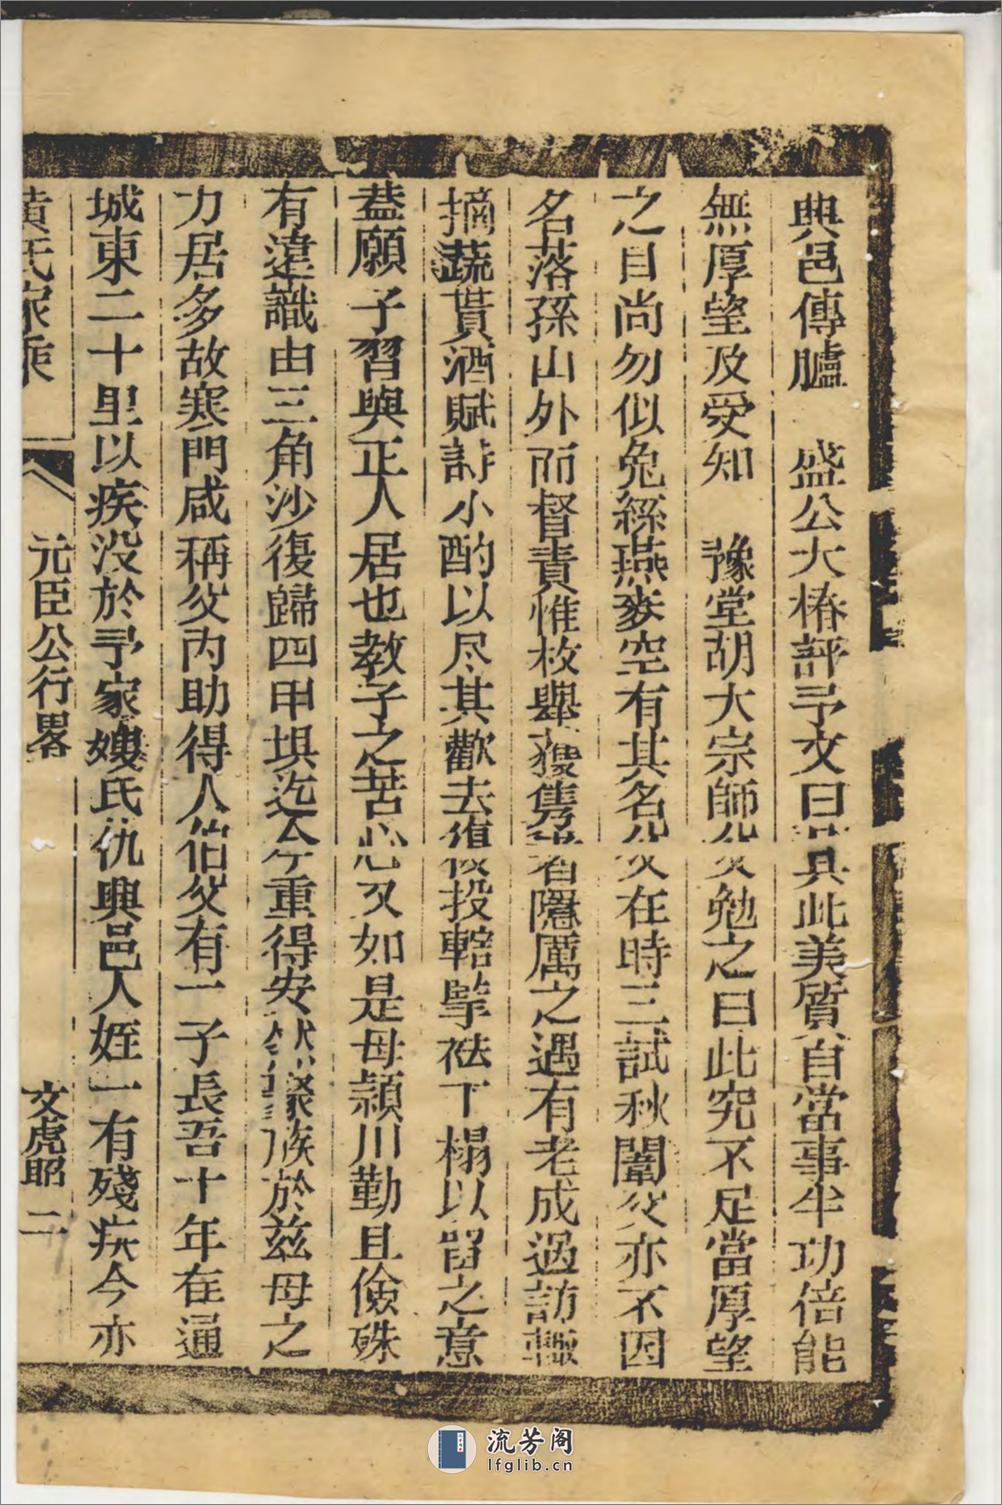 興邑傳臚　盛公大椿評予文曰具此美質自當事半功倍能
無厚望及受知　豫堂胡大宗師父勉之曰此究不足當厚望
之目尚勿似兔絲燕麥空有其名父在時三試秋闈父亦不因
名落孫山外而督責惟枚舉獲雋者隱厲之遇有老成過訪輙
摘蔬貰酒賦詩小酌以尽其歡去復投轄擎袪下榻以留之意
蓋願子習與正人居也教子之苦心又如是母頴川勤且儉殊
有遠識由三角沙復歸四甲垻迄今重得安聚族於兹母之
力居多故寒門咸稱父内助得人伯父有一子長吾十年在通
城東二十里以疾没於予家嫂氏仇興邑人姪一有殘疾今亦
黄氏家乘
元臣公行畧
文虎昭 二
流芳阁
lfglib.cn